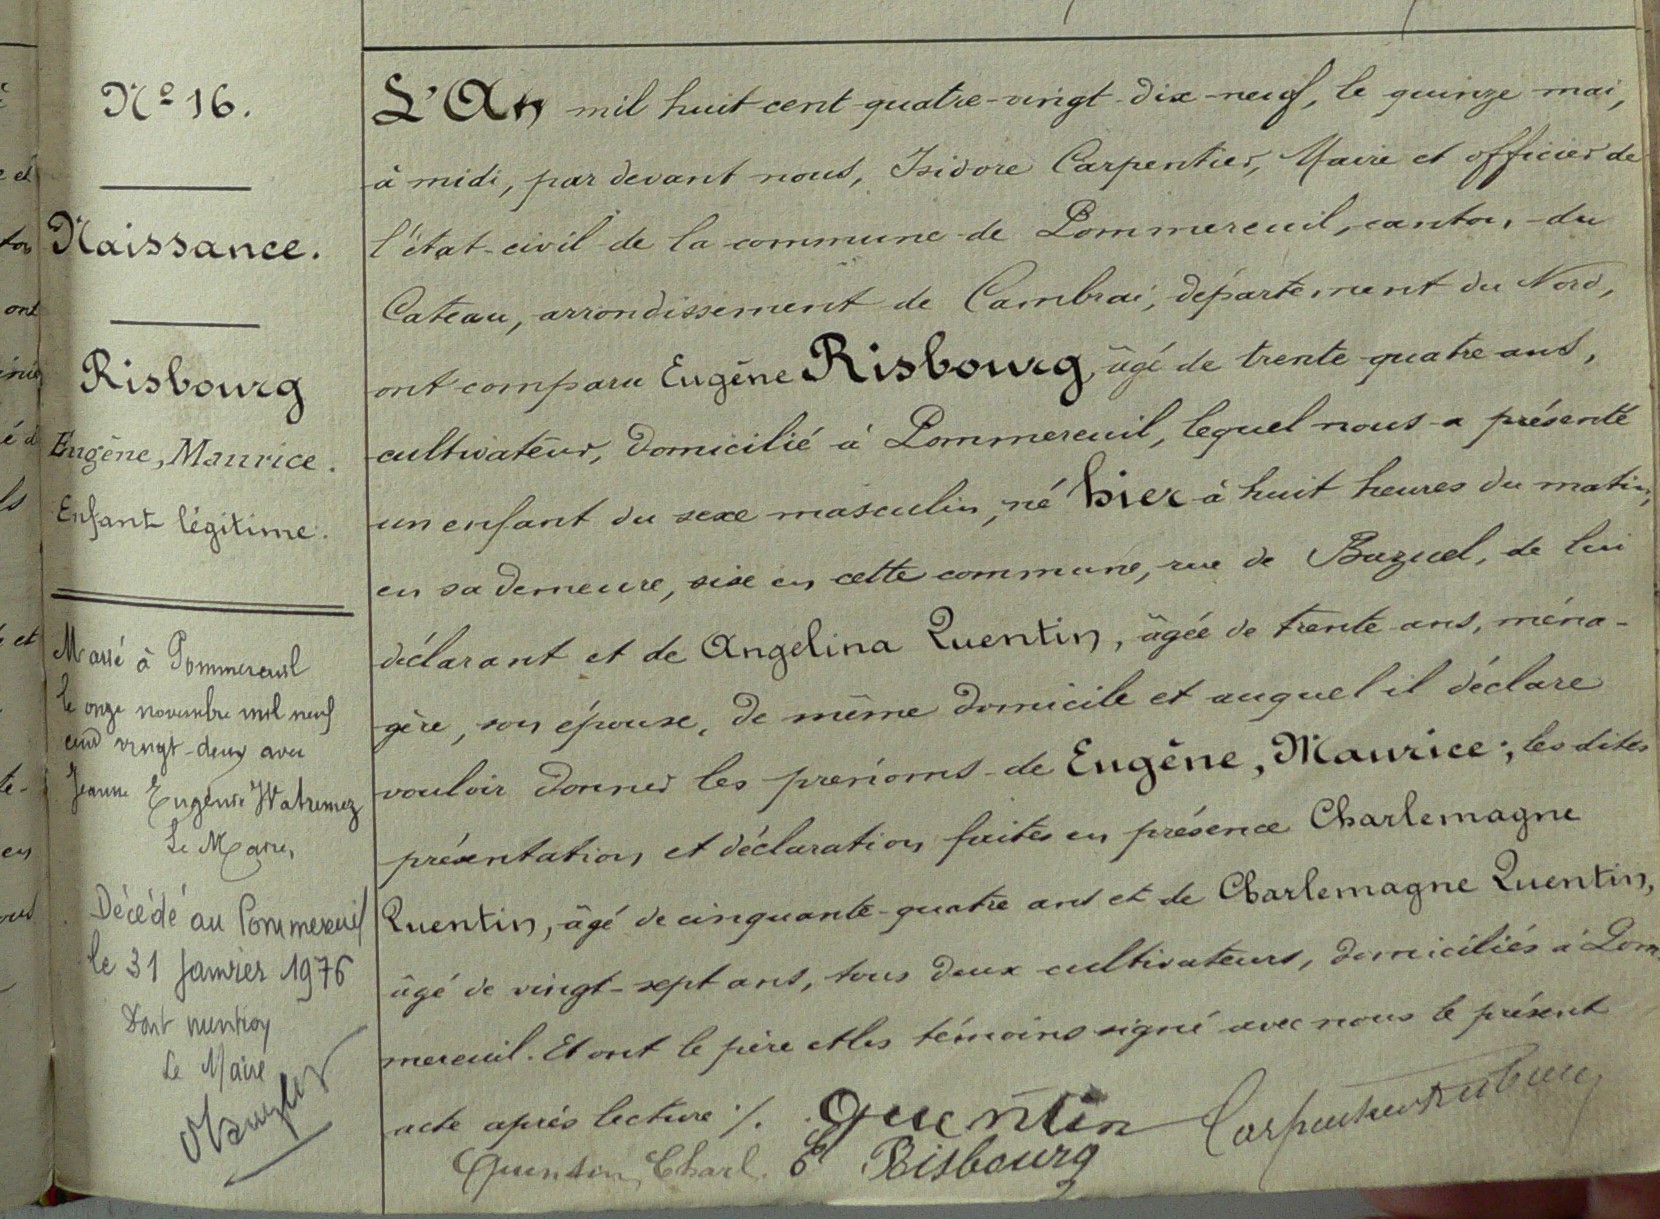 Nº 16.
Naissance.
Risbourg
Eugène, Maurice.
Enfant légitime.
Marié à Pommereuil
le onze novembre mil neuf
cent vingt-deux avec
Jeanne Eugénie Watremez
Le Maire,
Décédé au Pommereuil
le 31 Janvier 1976
Dont mention
Le Maire
L'An mil huit cent quatre-vingt-dix-neuf, le quinze mai,
à midi, par devant nous, Isidore Carpentier, Maire et officier de
l'état-civil de la commune de Pommereuil, canton du
Cateau, arrondissement de Cambrai, département du Nord,
ont comparu Eugène Risbourg, âgé de trente-quatre ans,
cultivateur, domicilié à Pommereuil, lequel nous a présenté
un enfant du sexe masculin, né hier à huit heures du matin,
en sa demeure, sise en cette commune, rue de Bazuel, de lui
déclarant et de Angelina Quentin, âgée de trente ans, ména-
gère, son épouse, de même domicile et auquel il déclare
vouloir donner les prénoms de Eugène, Maurice; les dites
présentation et déclaration faites en présence Charlemagne
Quentin, âgé de cinquante-quatre ans et de Charlemagne Quentin,
âgé de vingt-sept ans, tous deux cultivateurs, domiciliés à Pom
mereuil. Et ont le père et les témoins signé avec nous le présent
acte après lecture ./. Quentin Carpentier
Quentin Charl. E Risbourg